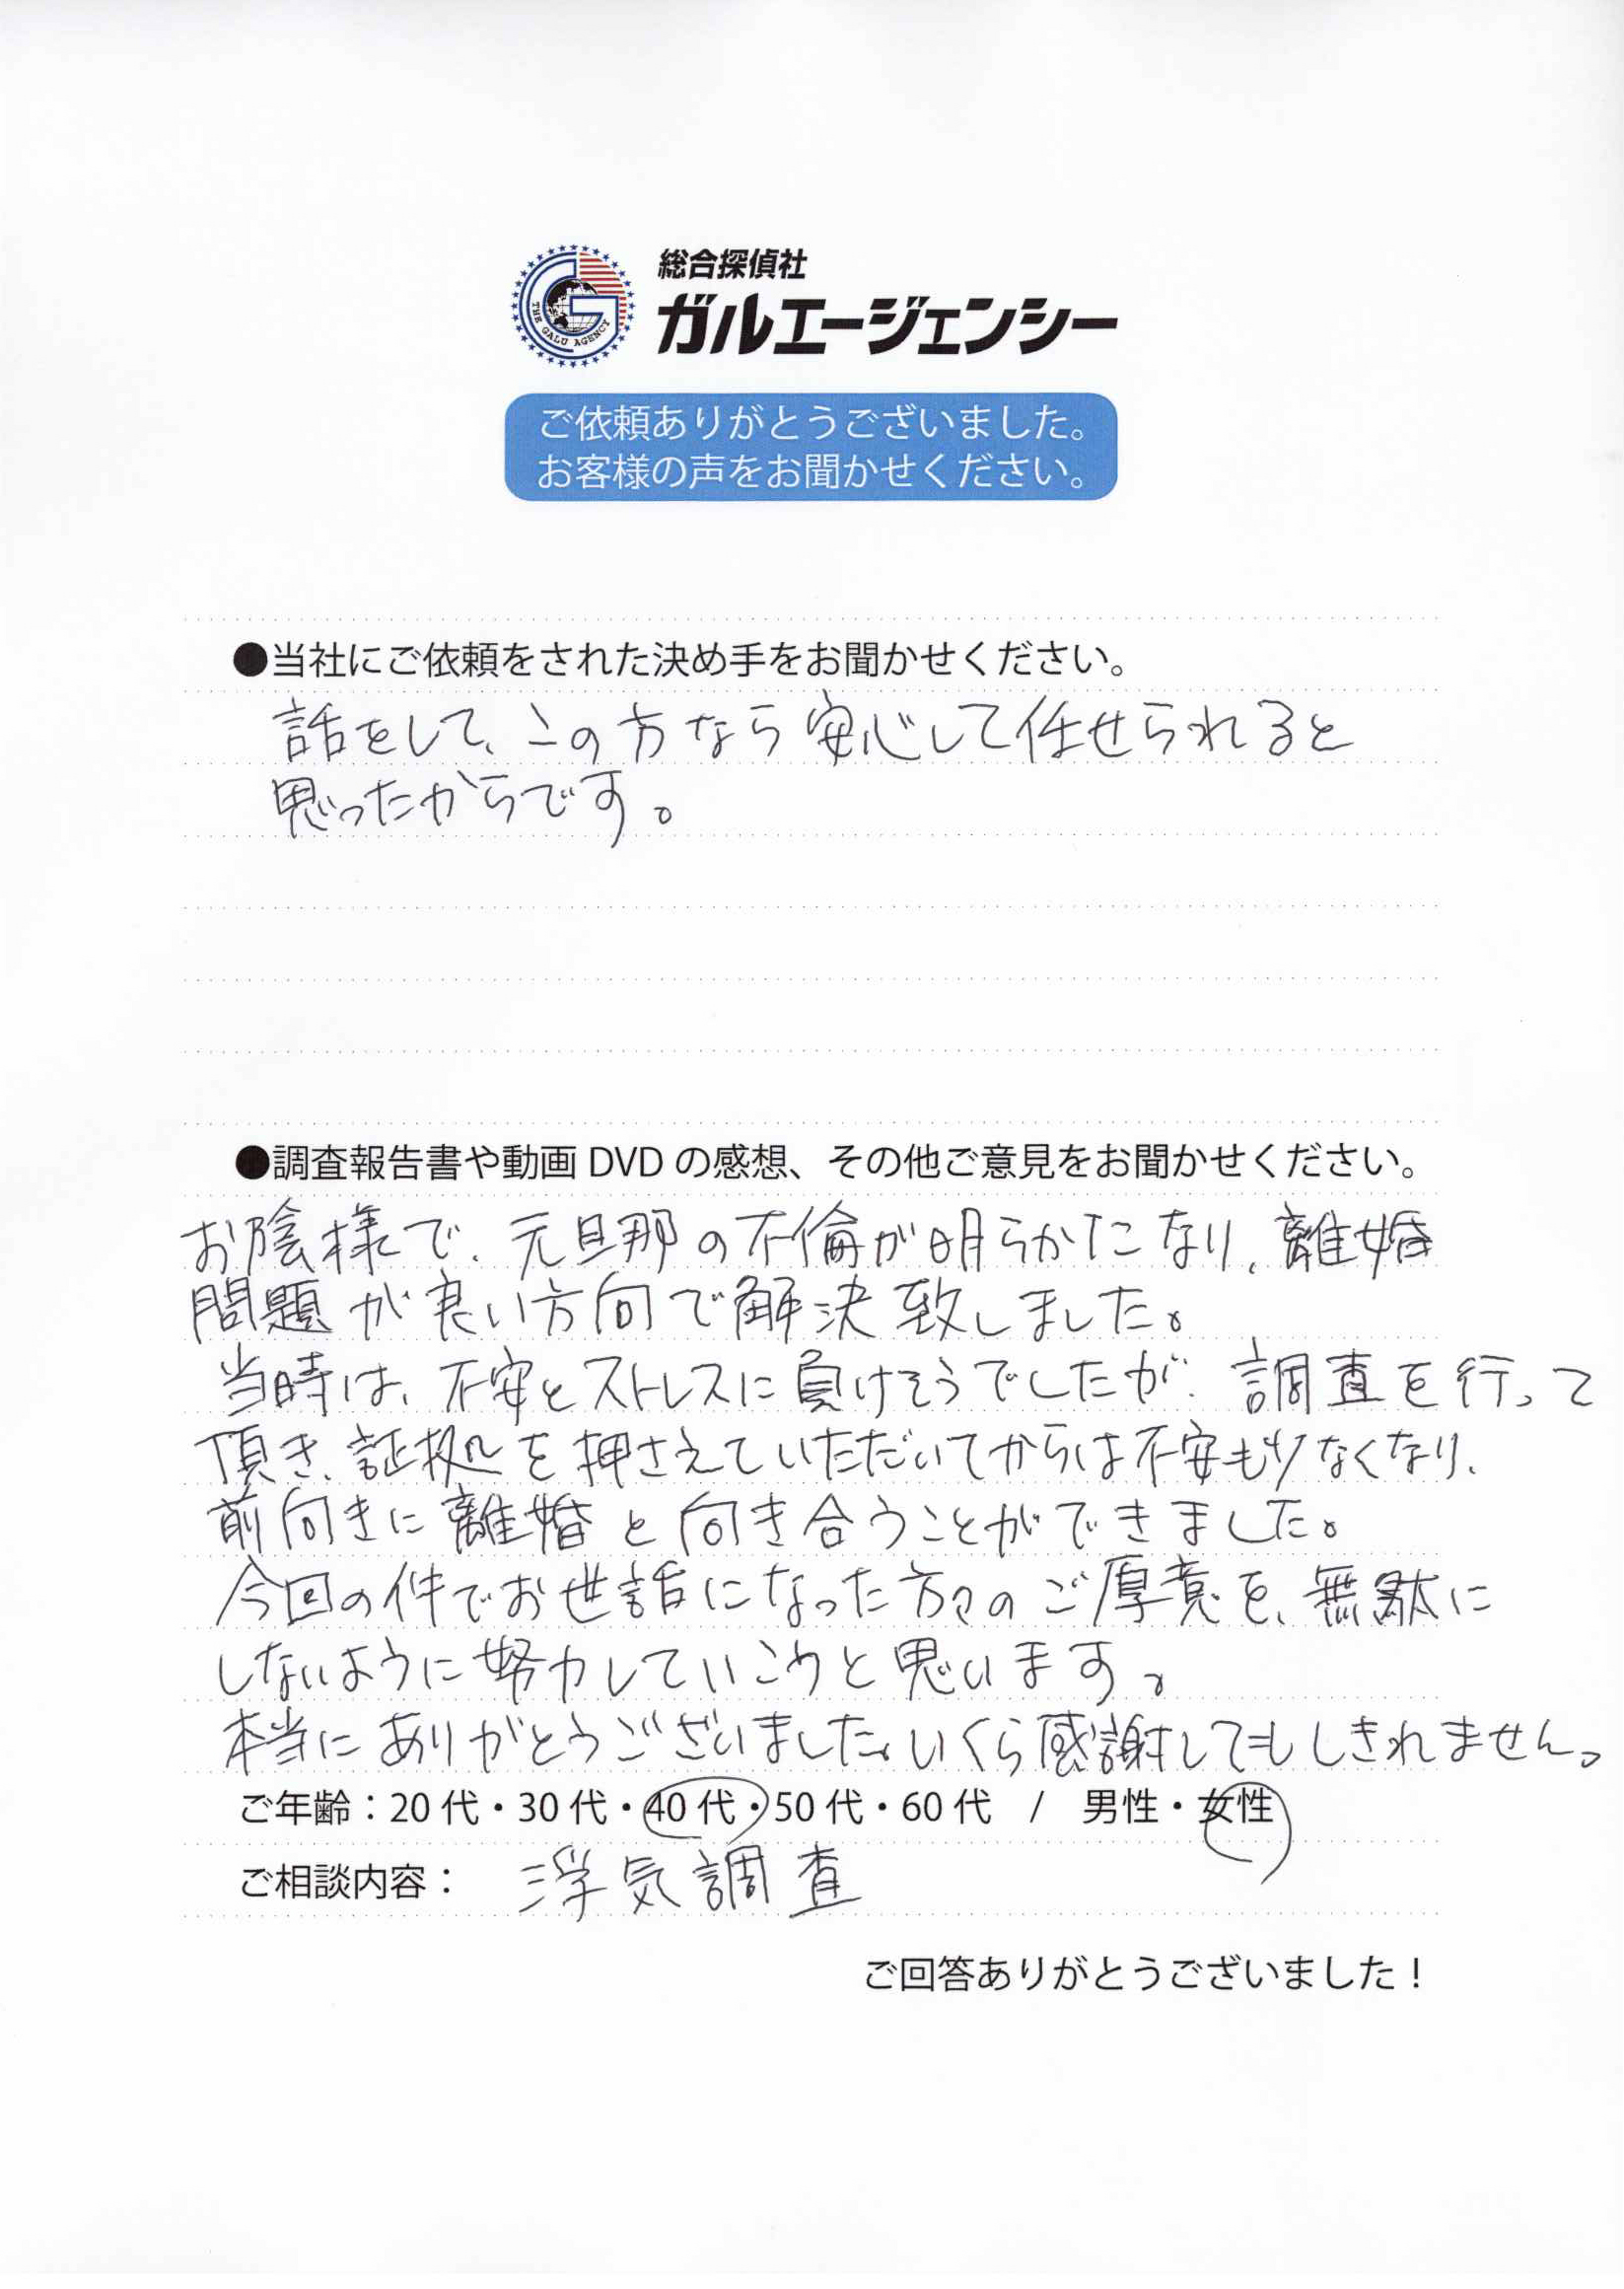 総合探偵社
ガルエージェンシー
THE GALU AGENCY
ご依頼ありがとうございました。
お客様の声をお聞かせください。
●当社にご依頼をされた決め手をお聞かせください。
話をして、この方なら安心して任せられると
思ったからです。
●調査報告書や動画 DVD の感想、その他ご意見をお聞かせください。
お陰様で、元旦那の不倫が明らかになり、離婚
問題が良い方向で解決致しました。
当時は、不安とストレスに負けそうでしたが、調査を行って
頂き、証拠を押さえていただいてからは不安も少なくなり、
前向きに離婚と向き合うことができました。
今回の件でお世話になった方々のご厚意を、無駄に
しないように努力していこうと思います。
本当にありがとうございました。いくら感謝してもしきれません。
ご年齢：20 代・30 代・40 代・50 代・60 代 / 男性・女性
ご相談内容： 浮気調査
ご回答ありがとうございました！